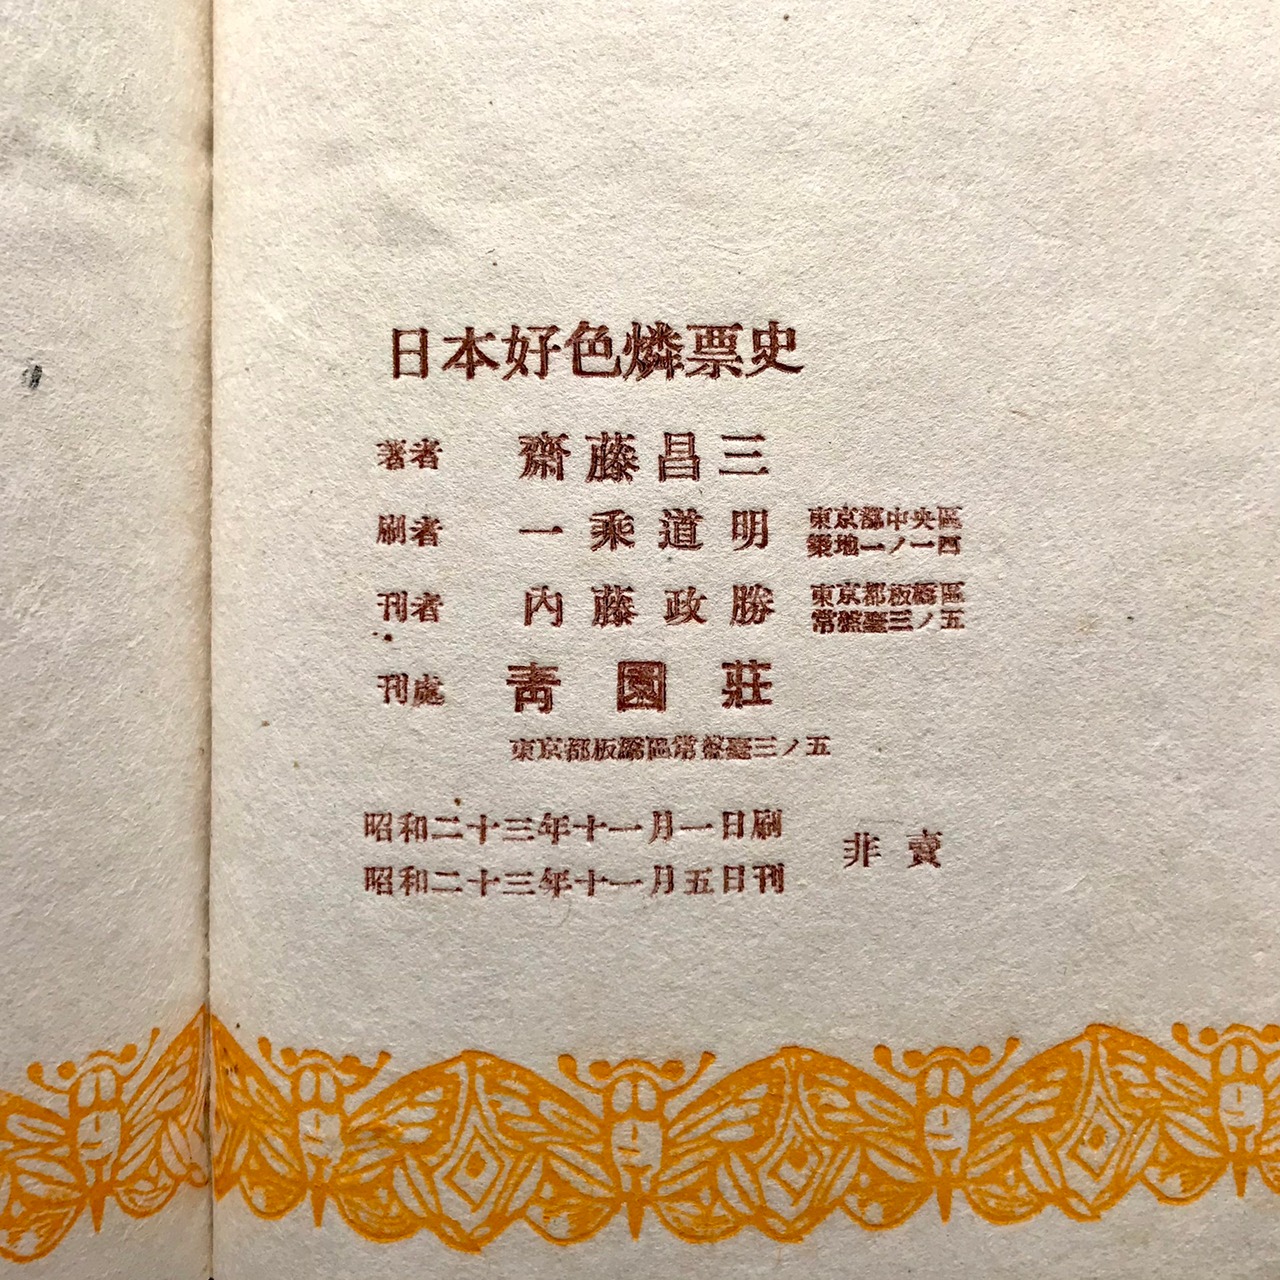 日本好色燐票史
著者 齋藤昌三
刷者 一乘道明 東京都中央區
築地一ノ一四
刊者 內藤政勝 東京都板橋區
常盤臺三ノ五
刊處 靑園莊
東京都板橋區常盤臺三ノ五
昭和二十三年十一月一日刷
昭和二十三年十一月五日刊
非賣